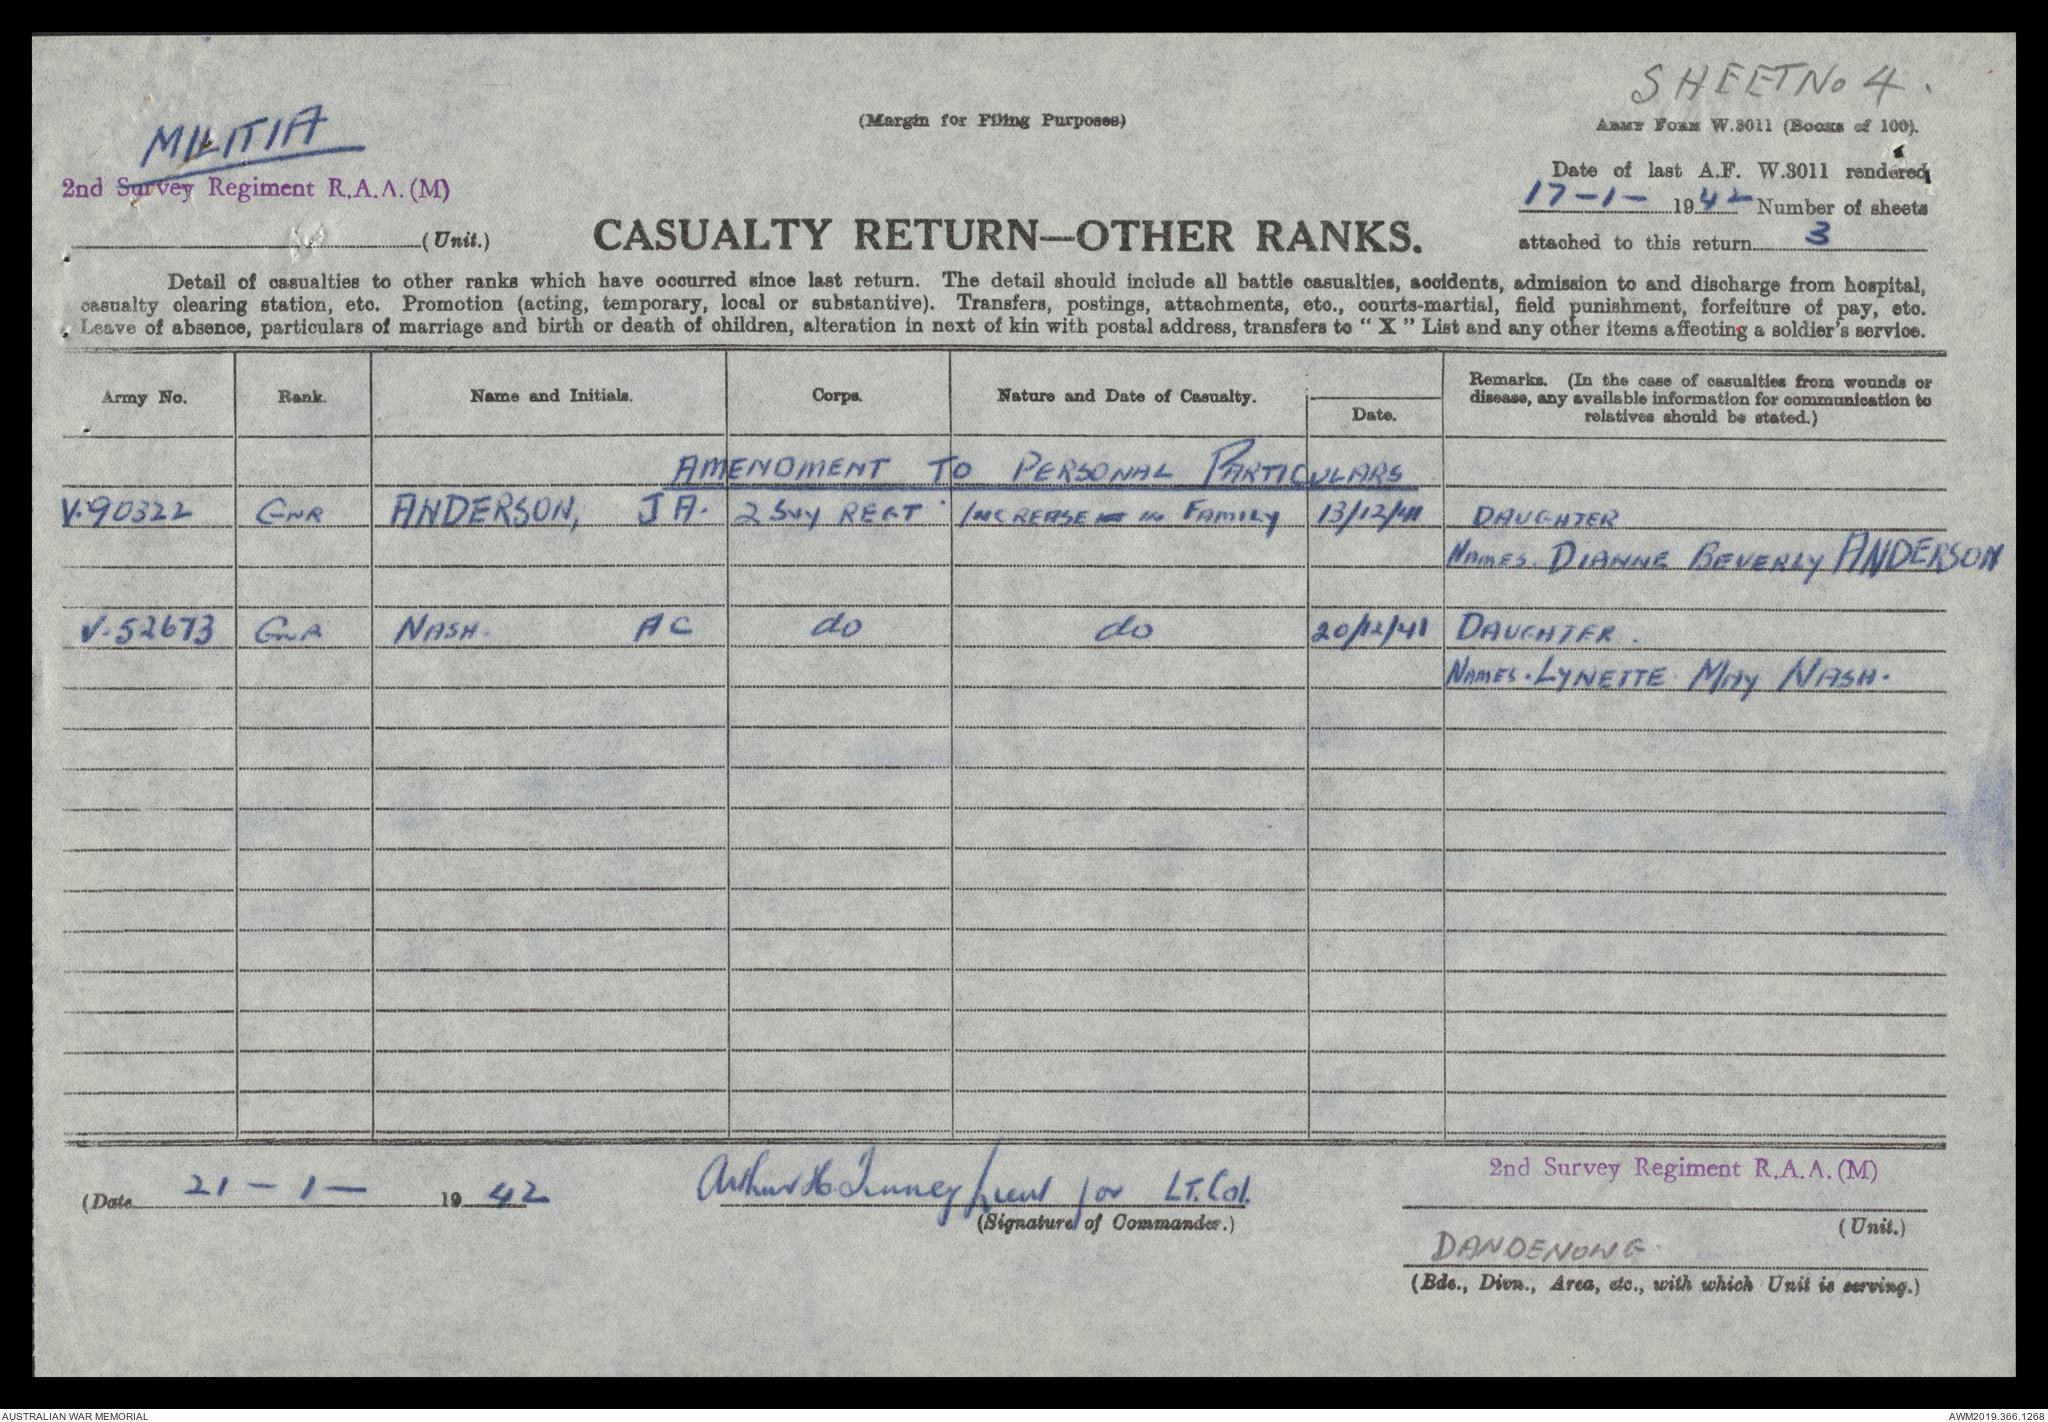 SHEET No 4.
MILITIA
(Margin for Filing Purposes)
ARMY FORM W.3011 (BOOKS of 100).
Date of last A.F. W.3011 rendered
2nd Survey Regiment R.A.A.(M)
17-1- 1942 Number of sheets
(Unit.)
CASUALTY RETURN—OTHER RANKS.
attached to this return 3
Detail of casualties to other ranks which have occurred since last return. The detail should include all battle casualties, accidents, admission to and discharge from hospital,
casualty clearing station, etc. Promotion (acting, temporary, local or substantive). Transfers, postings, attachments, etc., courts-martial, field punishment, forfeiture of pay, etc.
Leave of absence, particulars of marriage and birth or death of children, alteration in next of kin with postal address, transfers to "X" List and any other items affecting a soldier's service.
Army No. Rank. Name and Initials. Corps. Nature and Date of Casualty. Date. Remarks. (In the case of casualties from wounds or
disease, any available information for communication to
relatives should be stated.)
AMENDMENT TO PERSONAL PARTICULARS
V.90322 GNR ANDERSON, J A. 2 Svy REGT INCREASE in FAMILY 13/12/41 DAUGHTER
NAMES. DIANNE BEVERLY ANDERSON
V.52673 GNR NASH. A C do do 20/12/41 DAUGHTER.
NAMES. LYNETTE MAY NASH.
(Date 21-1- 1942
Arthur H. Tunney Lieut for LT. Col.
(Signature of Commander.)
2nd Survey Regiment R.A.A.(M)
(Unit.)
DANDENONG
(Bde., Divn., Area, etc., with which Unit is serving.)
AUSTRALIAN WAR MEMORIAL
AWM2019.366.1268